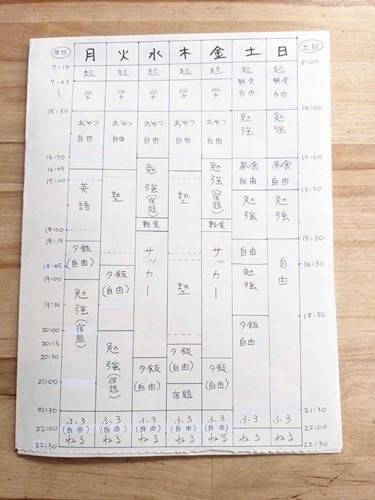 平日 月 火 水 木 金 土 日 土日
起 起 起 起 起 起 起
8:00
7:45
朝食 朝食
自由 自由
〜 学 学 学 学 学
15:30
おやつ おやつ おやつ おやつ おやつ
自由 自由 自由 自由 自由
勉強 勉強
16:30
16:45
17:00
英語
塾
勉強(宿題)
塾
勉強(宿題)
昼食 昼食
自由 自由
勉強 勉強
軽食 軽食
18:00
18:15
夕飯
(自由)
サッカー
サッカー
自由
自由
15:30
16:30
18:45
19:00
夕飯
(自由)
塾
勉強
勉強(宿題)
夕飯
自由
18:30
20:00
20:15
20:30
勉強(宿題)
夕飯
(自由)
夕飯
(自由)
夕飯
(自由)
宿題
21:00
21:30 21:30
ふろ ふろ ふろ ふろ ふろ ふろ ふろ
22:00 (自由) (自由) (自由) (自由) (自由) 22:00
ねる ねる ねる ねる ねる ねる ねる
22:30 22:30